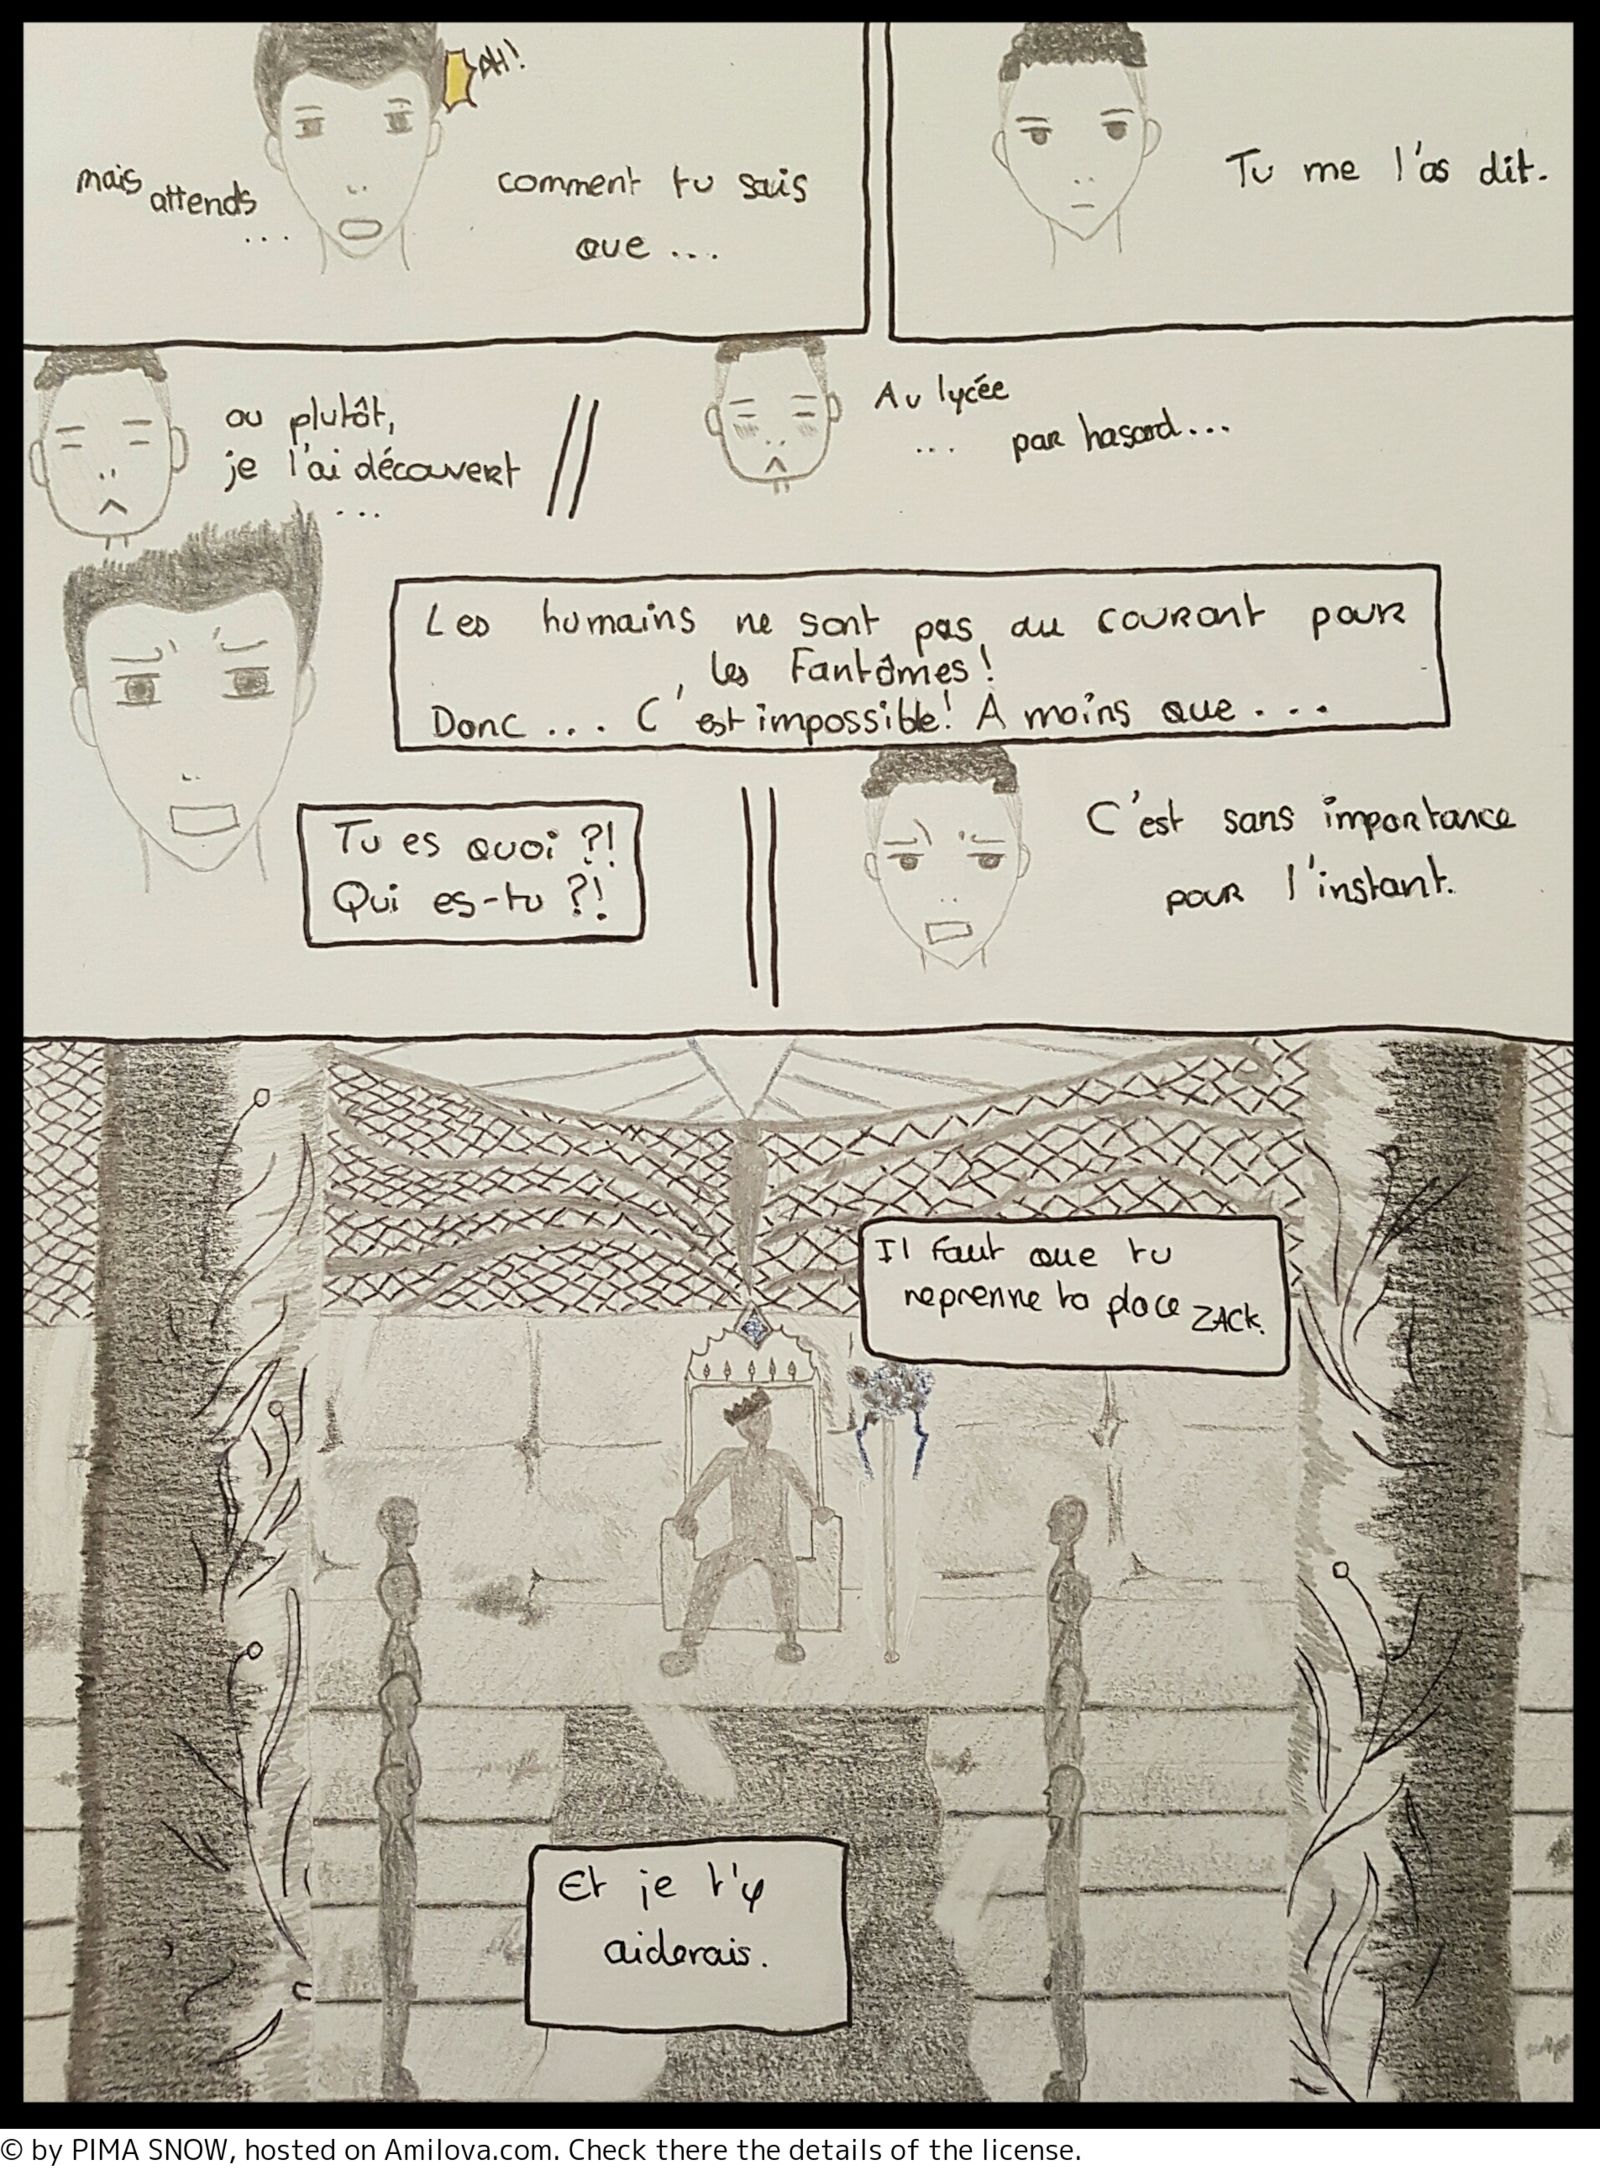 AH!
mais
attends
...
comment tu sais
que ...
Tu me l'as dit.
ou plutôt,
je l'ai découvert
...
Au lycée
... par hasard...
Les humains ne sont pas au courant pour
les Fantômes!
Donc ... C'est impossible! A moins que ...
Tu es quoi ?!
Qui es-tu ?!
C'est sans importance
pour l'instant.
Il faut que tu
reprenne ta place ZACK.
Et je t'y
aiderais.
© by PIMA SNOW, hosted on Amilova.com. Check there the details of the license.